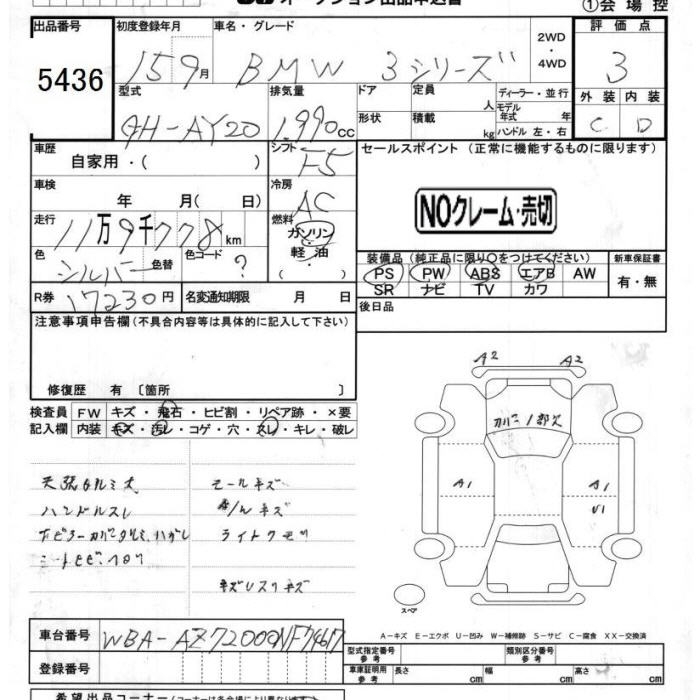 ①会場控
出品番号
5436
初度登録年月
15 9月
車名・グレード
BMW 3シリーズ
2WD
・
4WD
評価点
3
外装 内装
C D
型式
GH-AY20
排気量
1,990cc
ドア
定員 人
形状
積載 kg
ディーラー・並行
モデル年式 年
ハンドル 左・右
車歴
自家用・( )
シフト
F5
車検
年 月( 日)
冷房
AC
走行
11万9千778km
燃料
ガソリン
軽油
・
( )
色
シルバー
色替
色コード
?
R券
17230円
名変通知期限 月 日
セールスポイント(正常に機能するものに限ります)
NOクレーム・売切
装備品(純正品に限り○をつけてください)
PS PW ABS エアB AW
SR ナビ TV カワ
新車保証書
有・無
後日品
注意事項申告欄(不具合内容等は具体的に記入して下さい)
修復歴 有〔箇所 〕
検査員
記入欄
FW キズ・飛石・ヒビ割・リペア跡・×要
内装 キズ・汚レ・コゲ・穴・スレ・キレ・破レ
ハンドルスレ
モールキズ
A2 A2
A1
A1
U1
スペア
A－キズ E－エクボ U－凹み W－補修跡 S－サビ C－腐食 XX－交換済
車台番号
WBA-AZ72000NF74617
登録番号
型式指定番号
参考
類別区分番号
参考
車庫証明用
参考
長さ cm
幅 cm
高さ cm